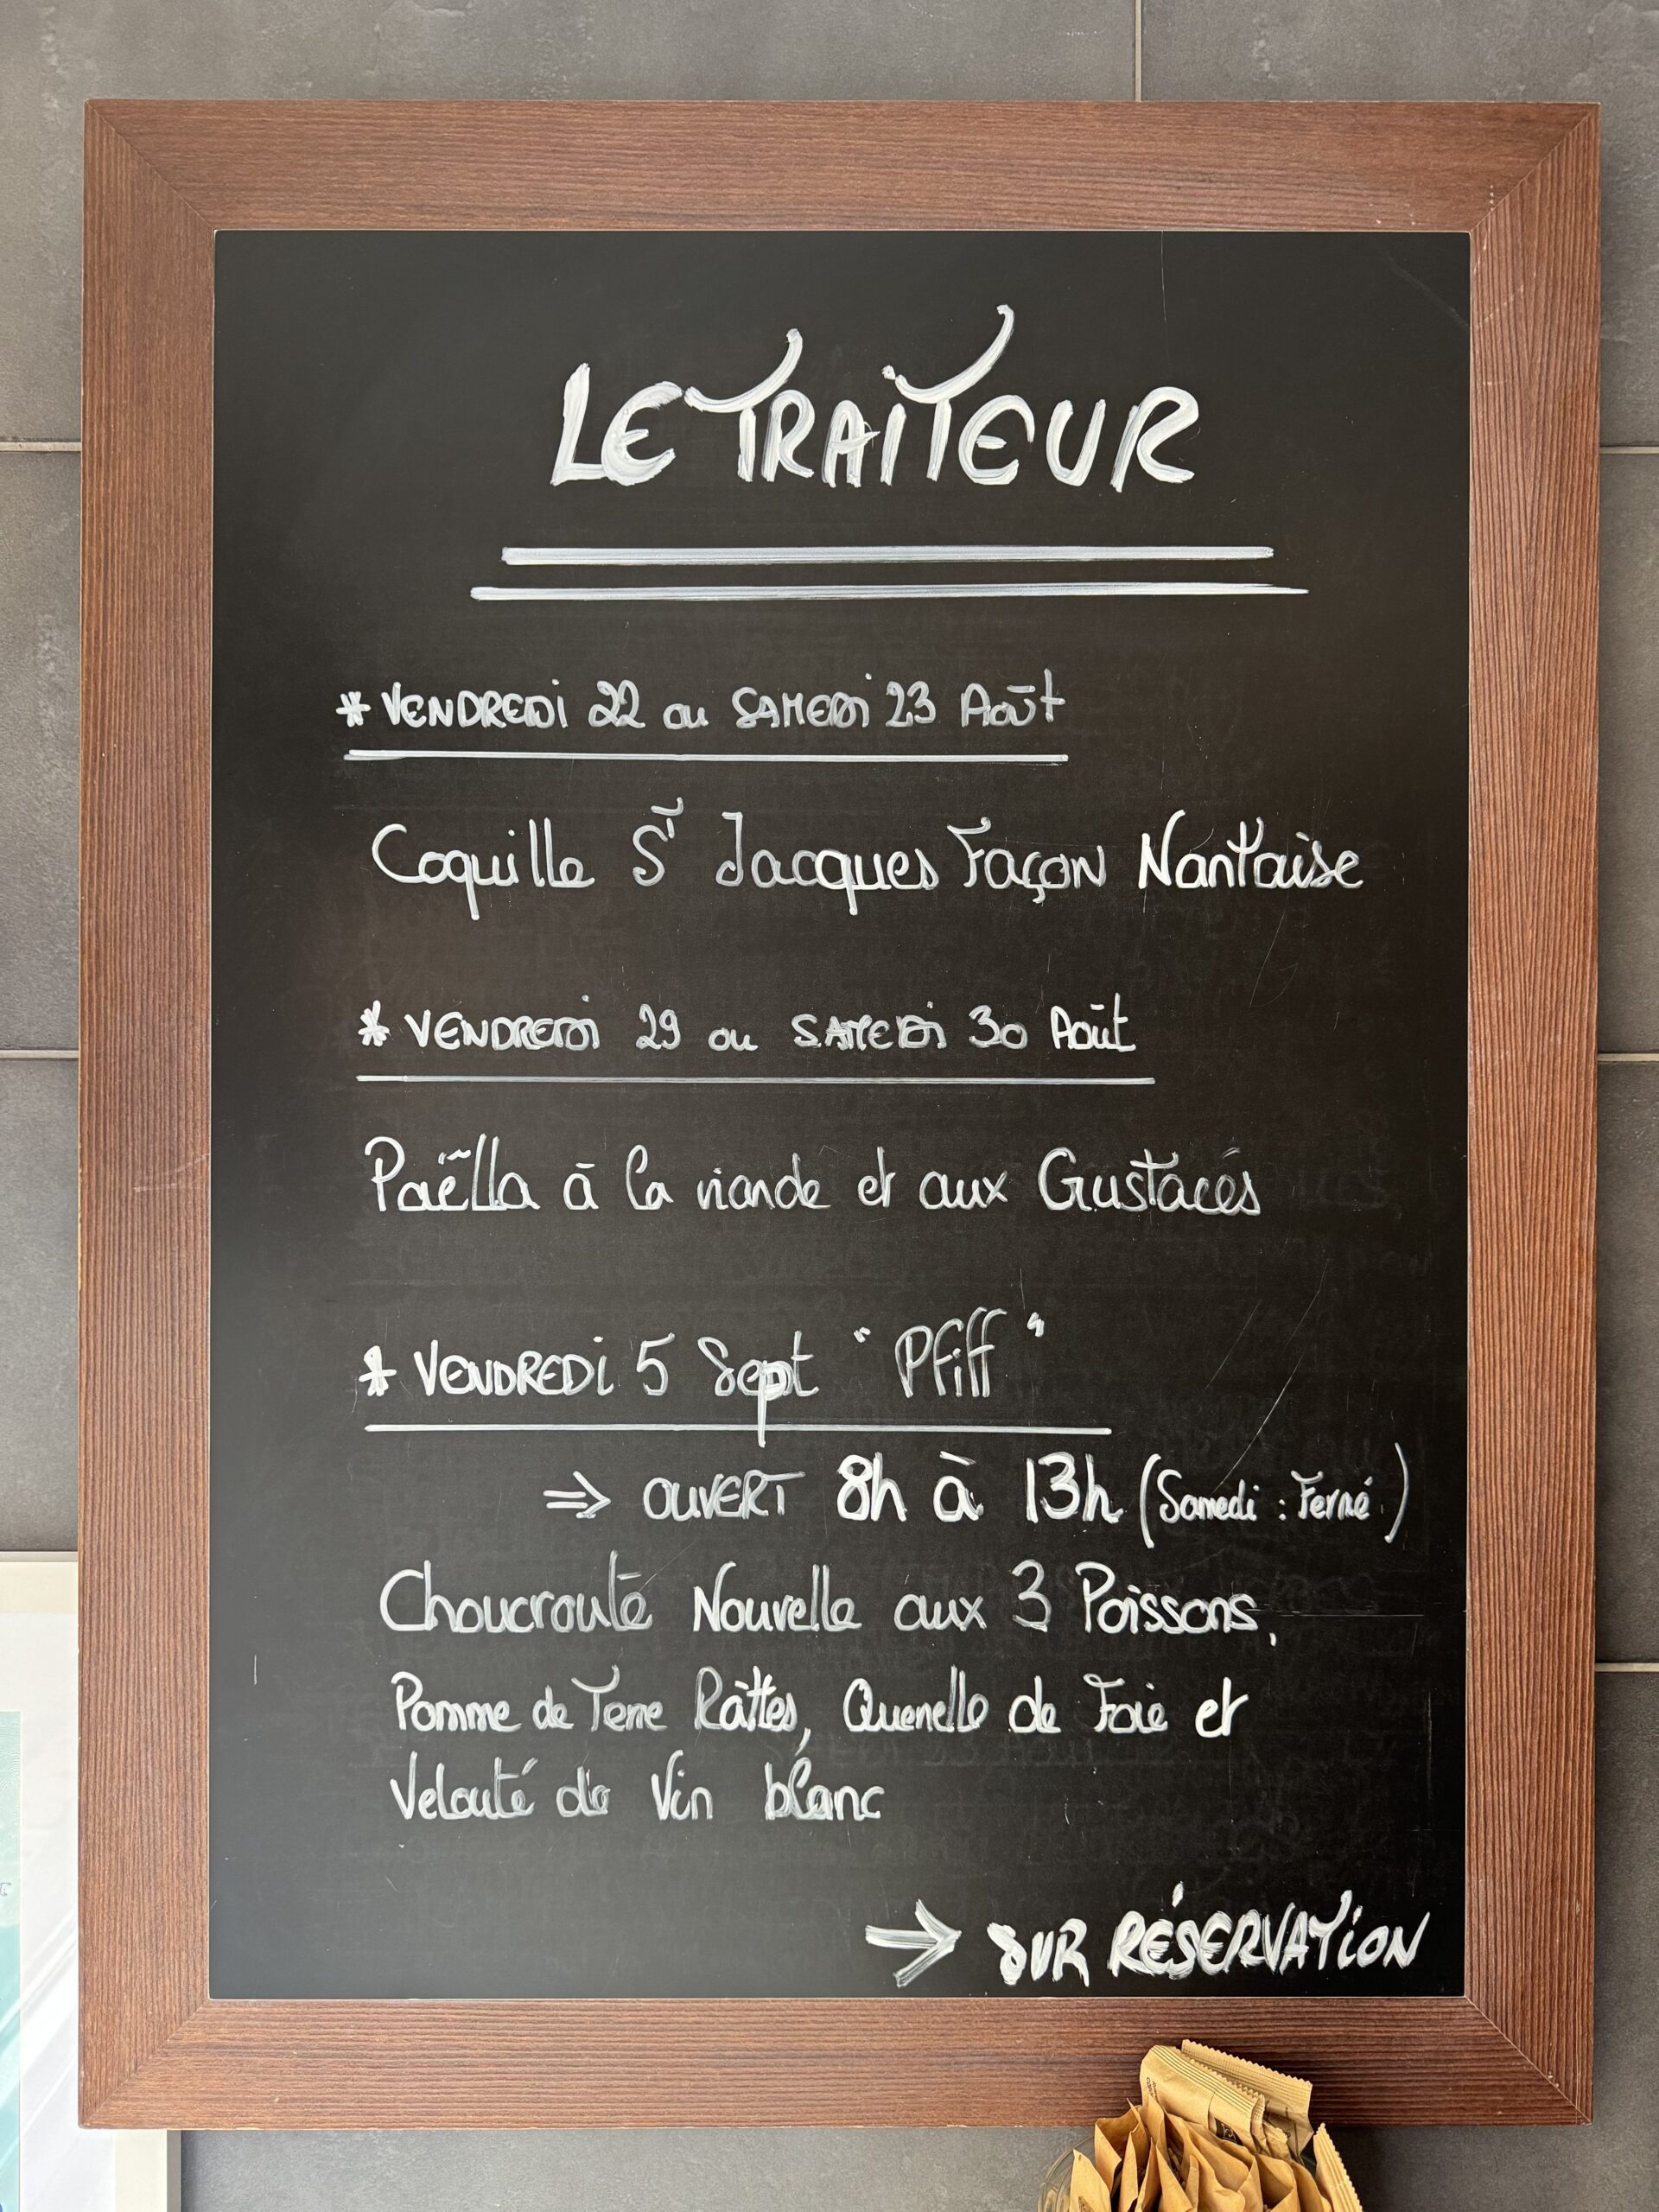 LE TRAITEUR
* VENDREDI 22 ou SAMEDI 23 Août
Coquille St Jacques Façon Nantaise
* VENDREDI 29 ou SAMEDI 30 Août
Paëlla à la viande et aux Crustacés
* VENDREDI 5 Sept "Pfiff"
⇒ OUVERT 8h à 13h (Samedi : Fermé)
Choucroute Nouvelle aux 3 Poissons,
Pomme de Terre Rattes, Quenelle de Foie et
Velouté de Vin blanc
→ SUR RÉSERVATION